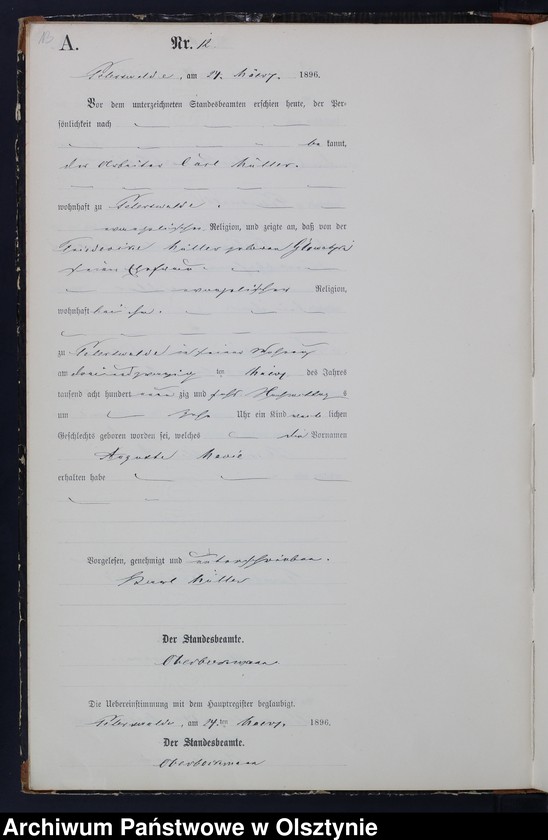 13
A.
Nr. 12
Peterswalde, am 24. März 1896.
Vor dem unterzeichneten Standesbeamten erschien heute, der Per-
sönlichkeit nach
be kannt,
der Arbeiter Carl Müller.
wohnhaft zu Peterswalde.
evangelischer Religion, und zeigte an, daß von der
Friederike Müller geboren
seiner Ehefrau
evangelischer Religion,
wohnhaft bei ihm.
zu Peterswalde in seiner Wohnung
am dreiundzwanzig ten März des Jahres
tausend acht hundert neun zig und sechs Nachmittag s
um Uhr ein Kind weib lichen
Geschlechts geboren worden sei, welches die Vornamen
Auguste Marie
erhalten habe
Vorgelesen, genehmigt und unterschrieben.
Karl Müller
Der Standesbeamte.
Oberbeckmann
Die Uebereinstimmung mit dem Hauptregister beglaubigt.
Peterswalde, am 24.ten März 1896.
Der Standesbeamte.
Oberbeckmann
Archiwum Państwowe w Olsztynie